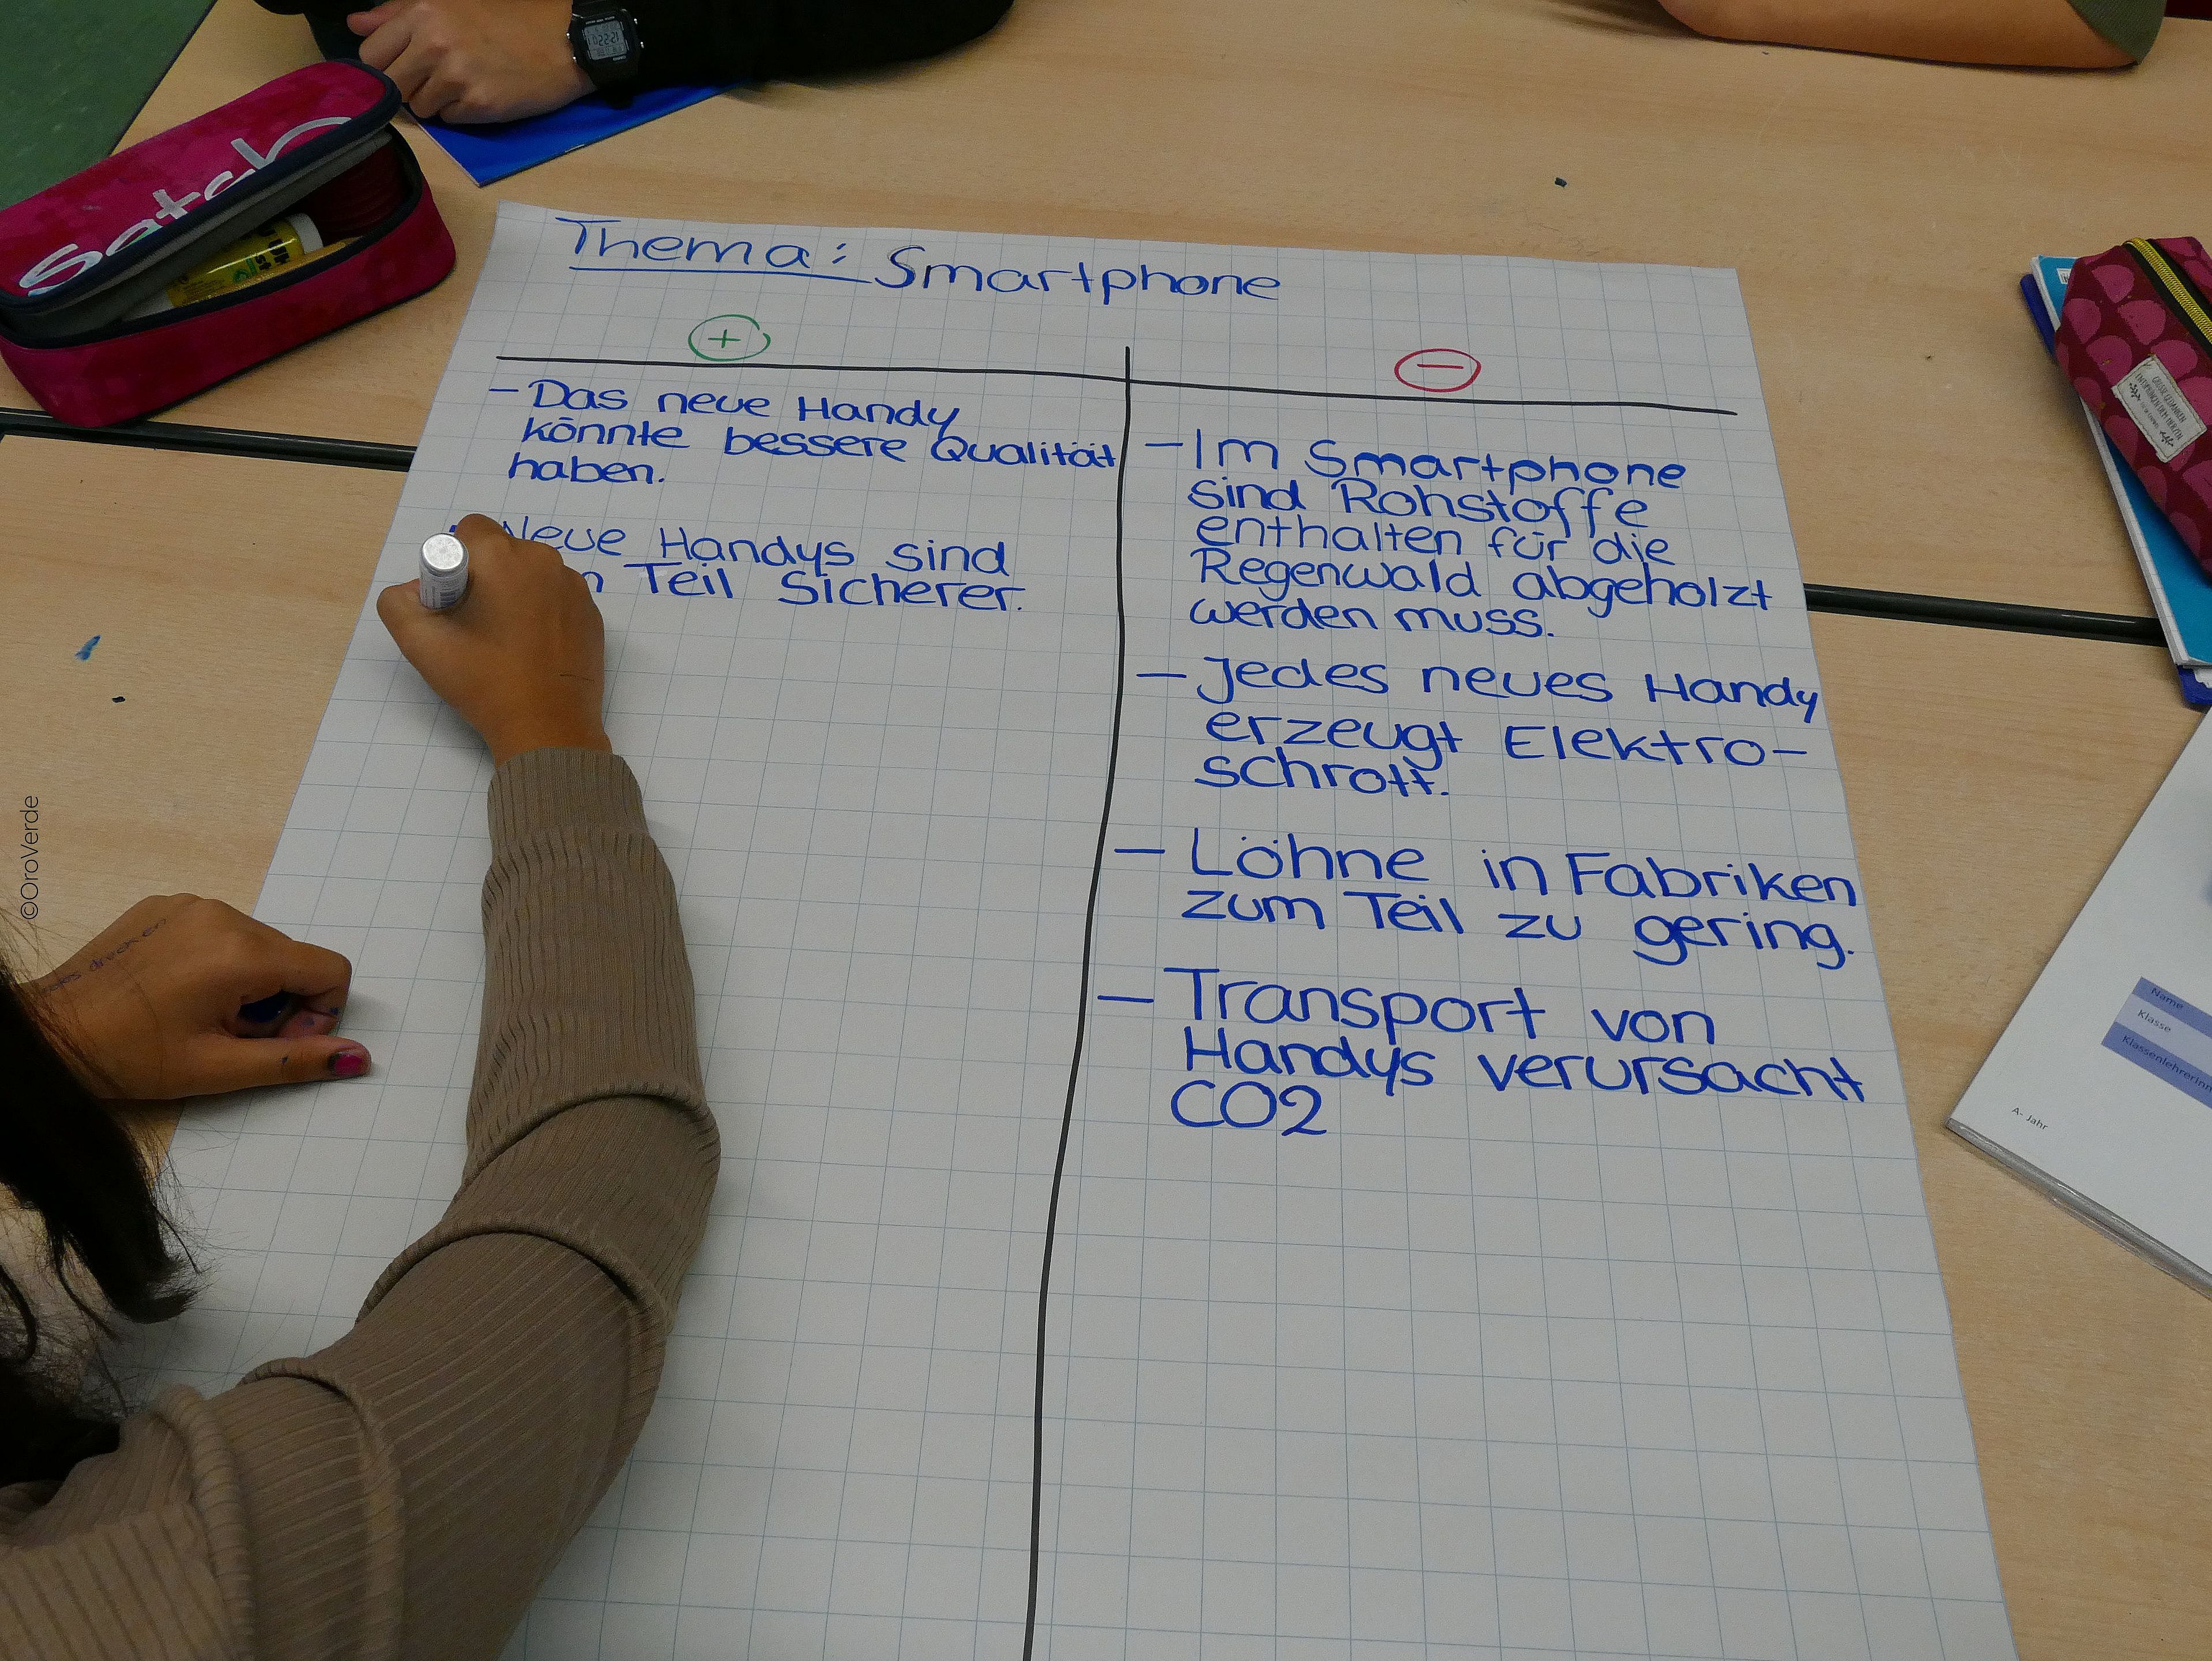 satch
Thema: Smartphone
+
−
– Das neue Handy
könnte bessere Qualität
haben.
Neue Handys sind
Teil Sicherer.
– Im Smartphone
sind Rohstoffe
enthalten für die
Regenwald abgeholzt
werden muss.
– Jedes neues Handy
erzeugt Elektro-
schrott.
– Löhne in Fabriken
zum Teil zu gering.
– Transport von
Handys verursacht
CO2
Name
Klasse
Klassenlehrerinn
A- Jahr
©OroVerde